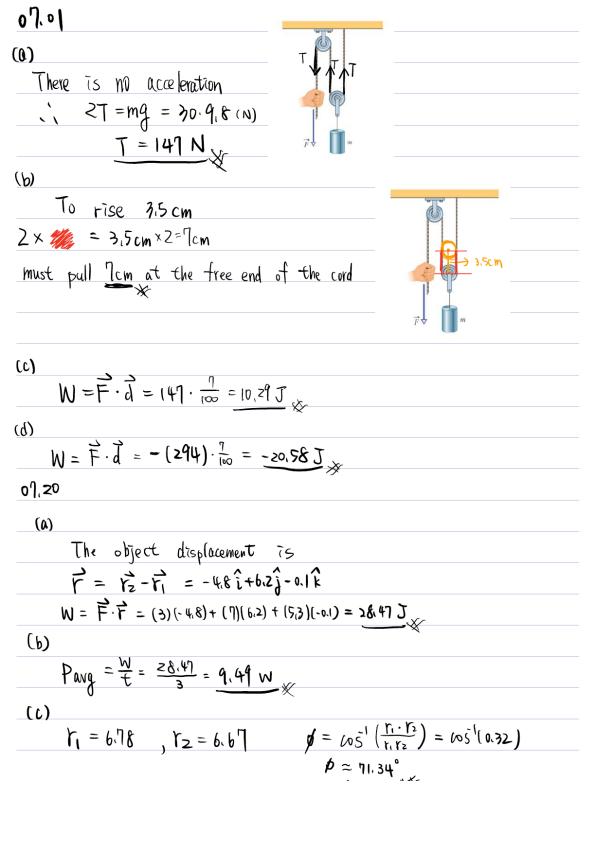 07.01
(a)
There is no acceleration
∴ 2T = mg = 30·9.8 (N)
T = 147 N
T T T
F m
(b)
To rise 3.5 cm
2 × = 3.5cm × 2 = 7cm
must pull 7cm at the free end of the cord
→ 3.5cm
F m
(c)
W = F · d = 147 · 7/100 = 10.29 J
(d)
W = F · d = -(294) · 7/100 = -20.58 J
07.20
(a)
The object displacement is
r = r2 - r1 = -4.8 i + 6.2 j - 0.1 k
W = F · r = (3)(-4.8) + (7)(6.2) + (5.3)(-0.1) = 28.47 J
(b)
Pavg = W/t = 28.47/3 = 9.49 W
(c)
r1 = 6.78 , r2 = 6.67 ϕ = cos⁻¹ (r1 · r2 / r1 r2) = cos⁻¹(0.32)
ϕ ≈ 71.34°